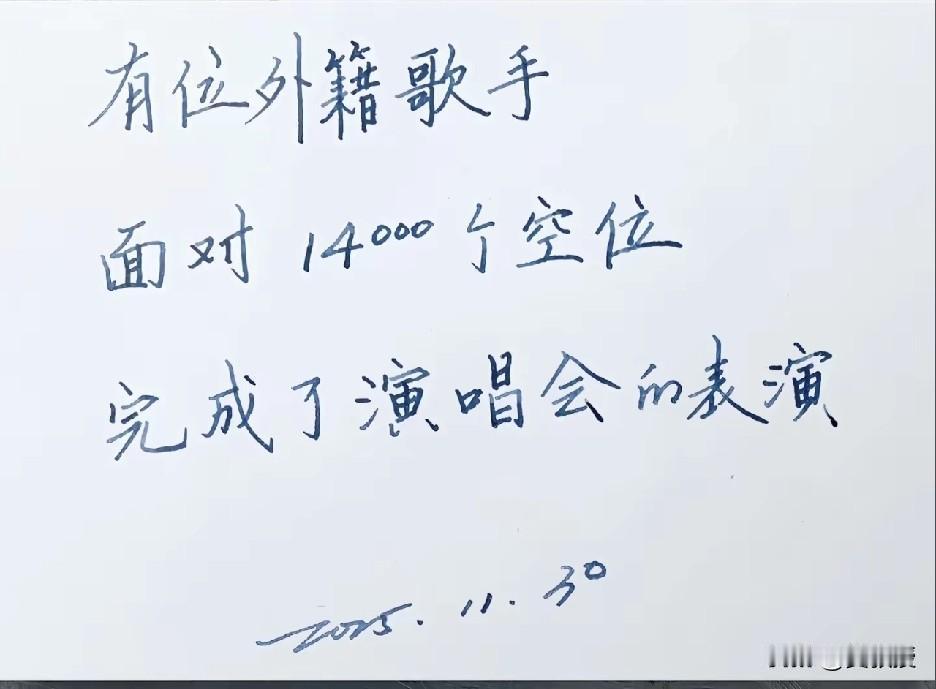 有位外籍歌手
面对14000个空位
完成了演唱会的表演
2025.11.30